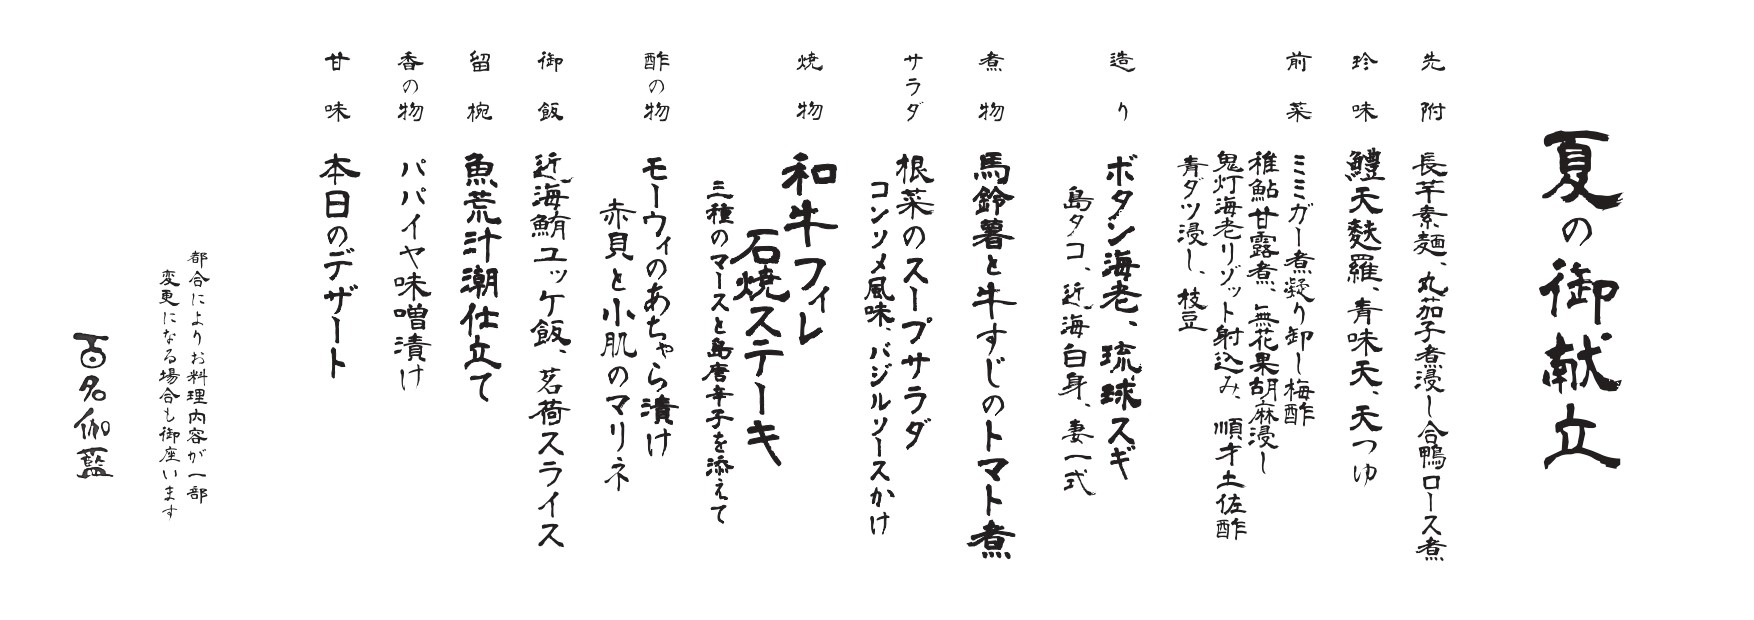 夏の御献立
先附 長芋素麺、丸茄子煮浸し合鴨ロース煮
珍味 鱧天麩羅、青味天、天つゆ
前菜 ミミガー煮凝り卸し梅酢
稚鮎甘露煮、無花果胡麻浸し
鬼灯海老リゾット射込み、順才土佐酢
青ダツ浸し、枝豆
造り ボタン海老、琉球スギ
島タコ、近海白身、妻一式
煮物 馬鈴薯と牛すじのトマト煮
サラダ 根菜のスープサラダ
コンソメ風味、バジルソースかけ
焼物 和牛フィレ
石焼ステーキ
三種のマースと島唐辛子を添えて
酢の物 モーウィのあちゃら漬け
赤貝と小肌のマリネ
御飯 近海鮪ユッケ飯、茗荷スライス
留椀 魚荒汁潮仕立て
香の物 パパイヤ味噌漬け
甘味 本日のデザート
都合によりお料理内容が一部
変更になる場合も御座います
百名伽藍